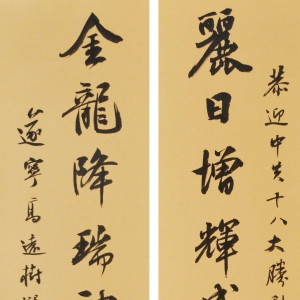 恭迎中共十八大勝
麗日增輝
金龍降瑞
遂寧高遠樹